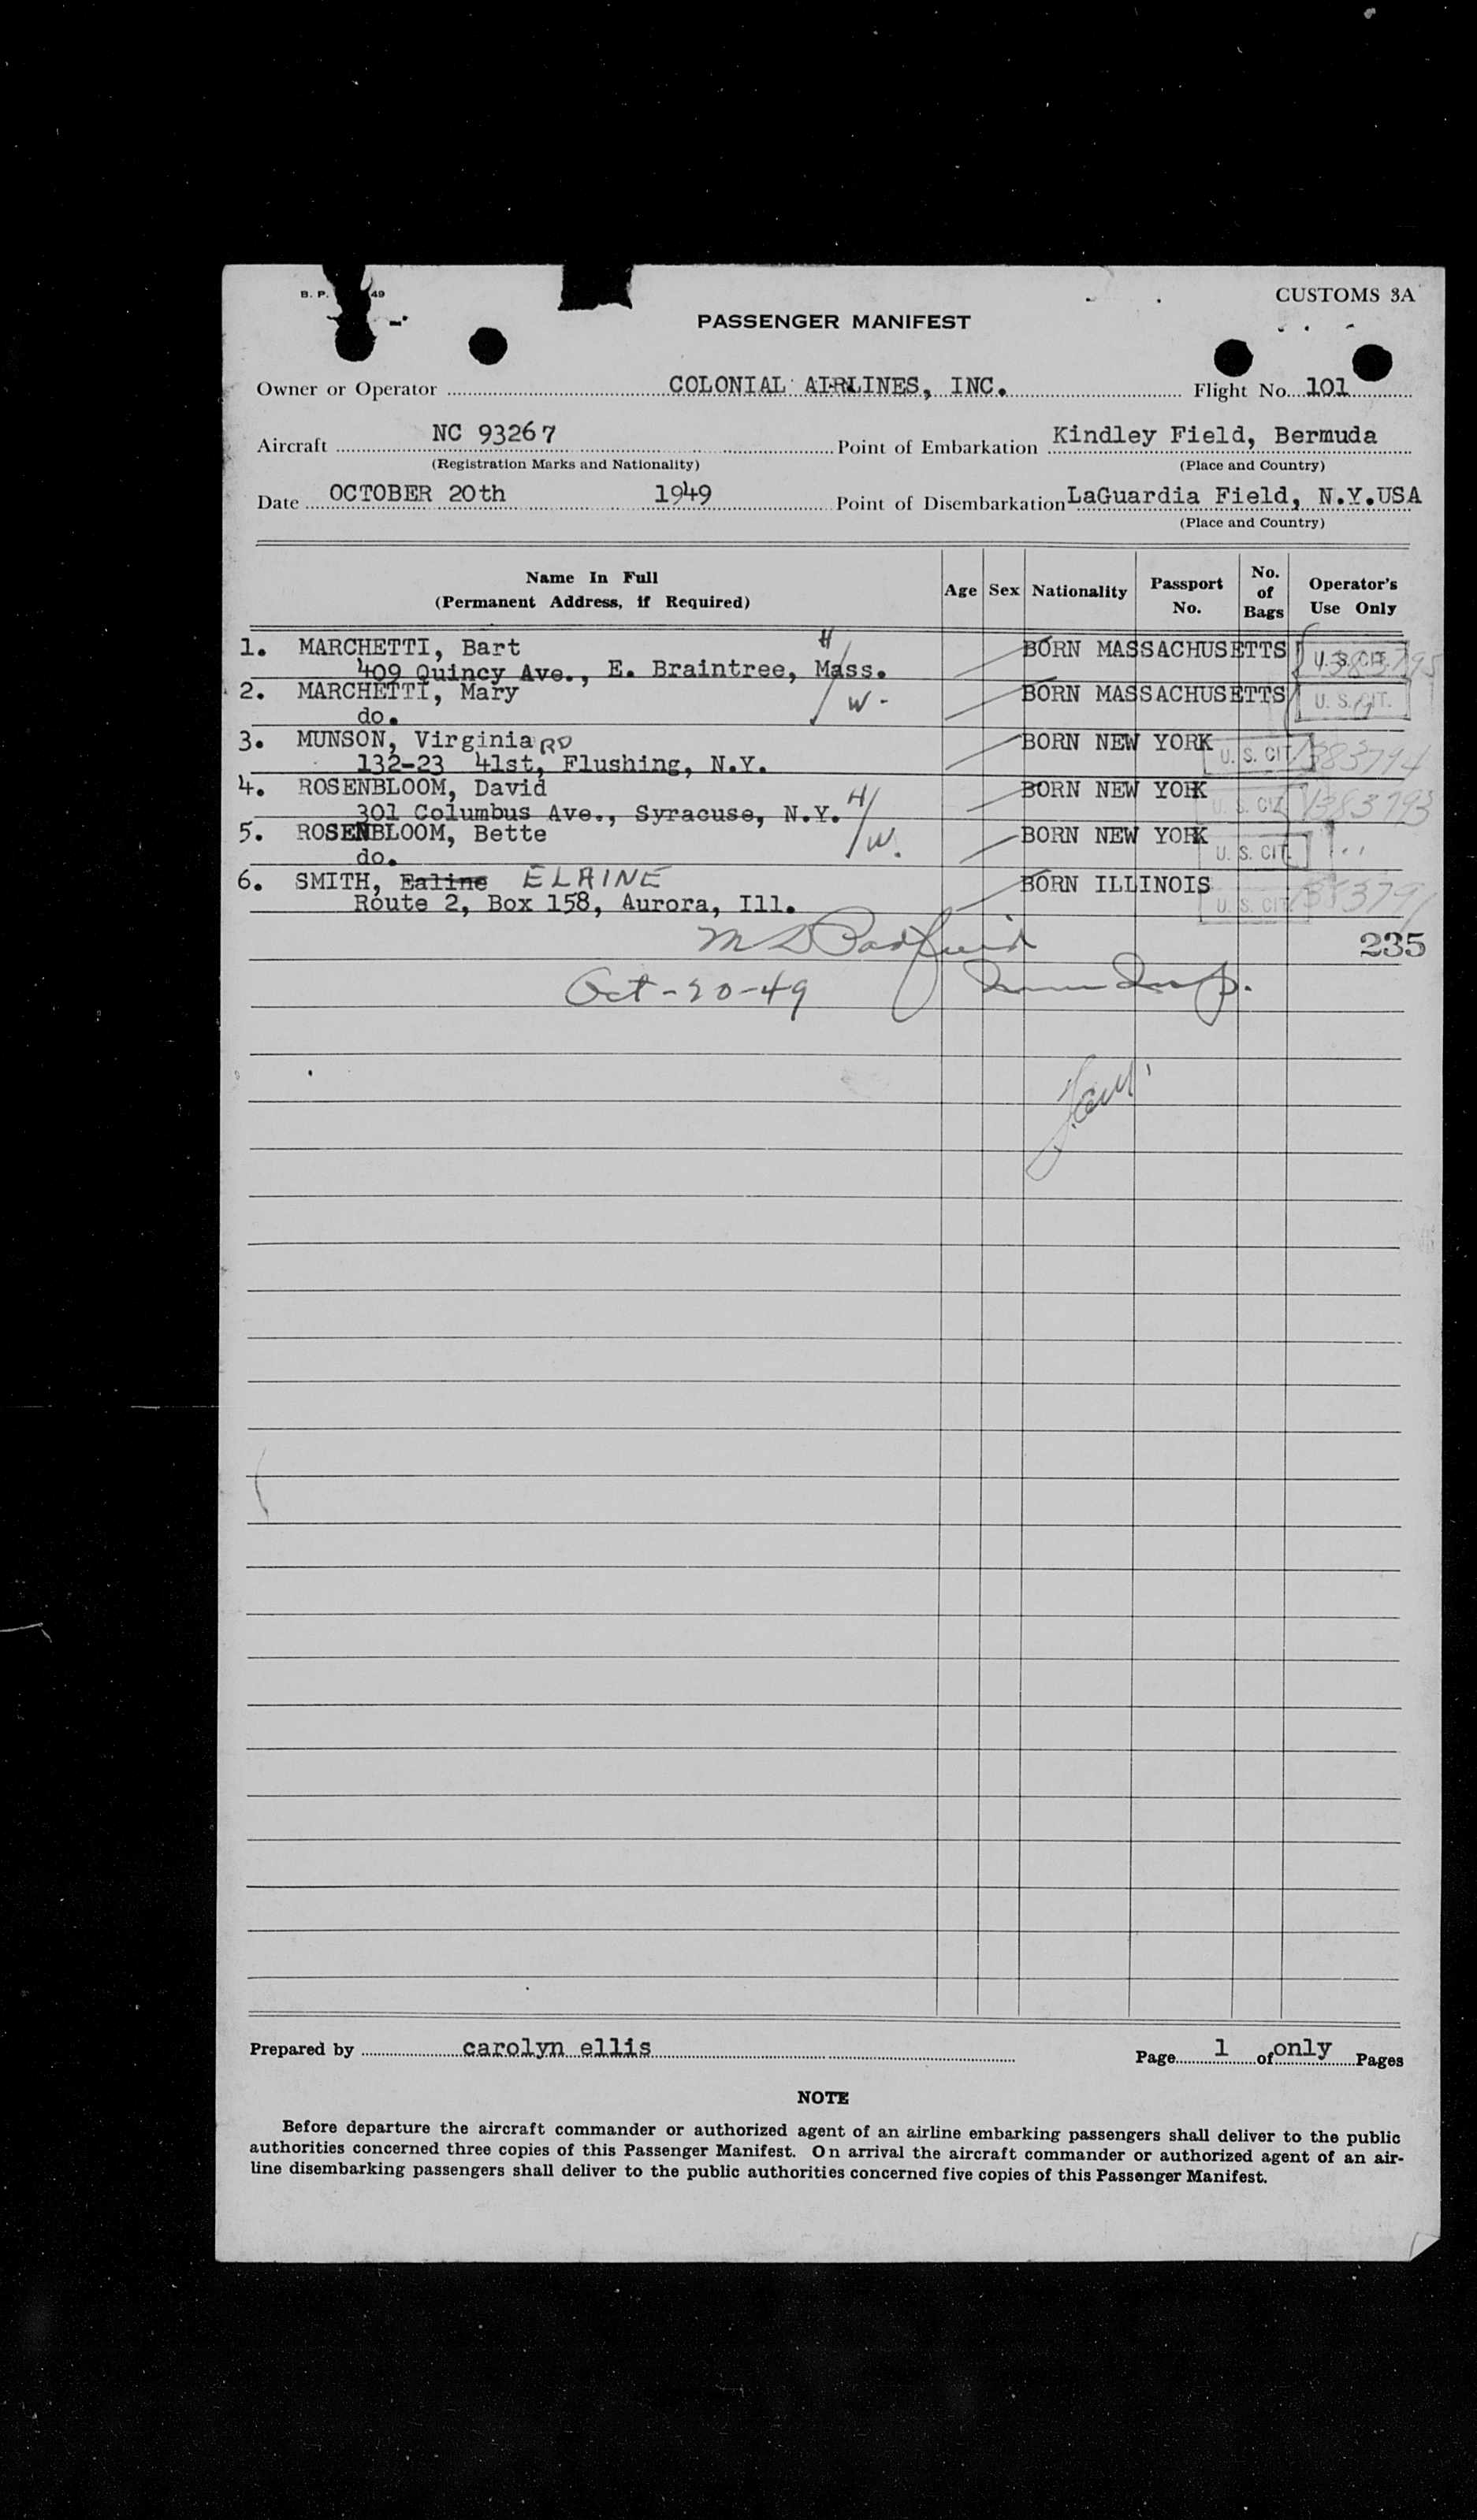 B. P. 49
CUSTOMS 3A
PASSENGER MANIFEST
Owner or Operator COLONIAL AIRLINES, INC. Flight No. 101
Aircraft NC 93267 Point of Embarkation Kindley Field, Bermuda
(Registration Marks and Nationality) (Place and Country)
Date OCTOBER 20th 1949 Point of Disembarkation LaGuardia Field, N.Y.USA
(Place and Country)
Name In Full (Permanent Address, if Required) Age Sex Nationality Passport No. No. of Bags Operator's Use Only
1. MARCHETTI, Bart H BORN MASSACHUSETTS U. S. CIT. 1383795
409 Quincy Ave., E. Braintree, Mass.
2. MARCHETTI, Mary W - BORN MASSACHUSETTS U. S. CIT.
do.
3. MUNSON, Virginia RD BORN NEW YORK U. S. CIT. 1383794
132-23 41st, Flushing, N.Y.
4. ROSENBLOOM, David H BORN NEW YORK U. S. CIT. 1383793
301 Columbus Ave., Syracuse, N.Y.
5. ROSENBLOOM, Bette W. BORN NEW YORK U. S. CIT. "
do.
6. SMITH, Ealine ELAINE BORN ILLINOIS U. S. CIT. 1383791
Route 2, Box 158, Aurora, Ill.
235
Oct-20-49
Prepared by carolyn ellis
Page 1 of only Pages
NOTE
Before departure the aircraft commander or authorized agent of an airline embarking passengers shall deliver to the public
authorities concerned three copies of this Passenger Manifest. On arrival the aircraft commander or authorized agent of an air-
line disembarking passengers shall deliver to the public authorities concerned five copies of this Passenger Manifest.